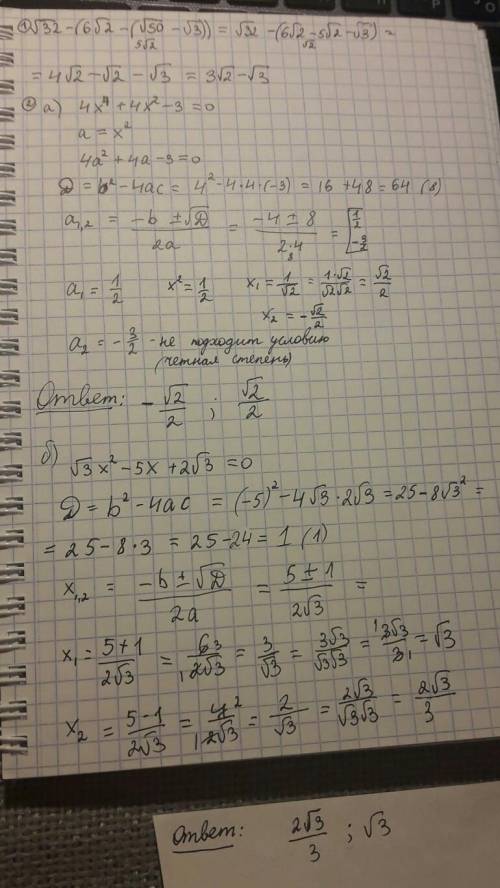 ① √32 - (6√2 - (√50 - √3)) = √32 - (6√2 - 5√2 - √3) =
5√2 √2
= 4√2 - √2 - √3 = 3√2 - √3
② а) 4x⁴ + 4x² - 3 = 0
a = x²
4a² + 4a - 3 = 0
D = b² - 4ac = 4² - 4·4·(-3) = 16 + 48 = 64 (8)
a₁,₂ = (-b ± √D)/2a = (-4 ± 8)/(2·4) = [1/2 -3/2
8
a₁ = 1/2 x² = 1/2 x₁ = 1/√2 = 1·√2/√2√2 = √2/2
x₂ = -√2/2
a₂ = -3/2 - не подходит условию
(четная степень)
Ответ: -√2/2 ; √2/2
б)
√3x² - 5x + 2√3 = 0
D = b² - 4ac = (-5)² - 4√3·2√3 = 25 - 8√3² =
= 25 - 8·3 = 25 - 24 = 1 (1)
x₁,₂ = (-b ± √D)/2a = (5 ± 1)/2√3 =
x₁ = (5+1)/2√3 = 6 3/1 2√3 = 3/√3 = 3√3/√3√3 = 1 3√3/3 1 = √3
x₂ = (5-1)/2√3 = 4 2/1 2√3 = 2/√3 = 2√3/√3√3 = 2√3/3
Ответ: 2√3/3 ; √3